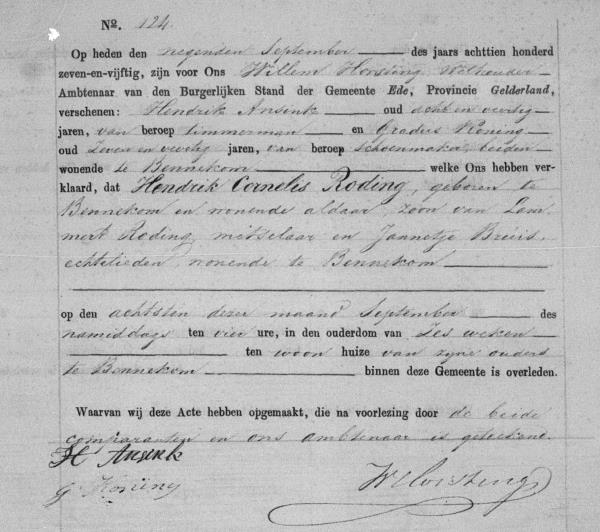 No. 124.
Op heden den negenden September des jaars achttien honderd
zeven-en-vijftig, zijn voor Ons Willem Horsting Wethouder
Ambtenaar van den Burgerlijken Stand der Gemeente Ede, Provincie Gelderland,
verschenen: Hendrik Ansink oud acht en veertig
jaren, van beroep timmerman en Gradus Koning
oud zeven en veertig jaren, van beroep schoenmaker, beiden
wonende te Bennekom welke Ons hebben ver-
klaard, dat Hendrik Cornelis Roding, geboren te
Bennekom en wonende aldaar, zoon van Lam
mert Roding, metselaar en Jannetje Bruis,
echtelieden, wonende te Bennekom
op den achtsten dezer maand September des
namiddags ten vier ure, in den ouderdom van Zes weken
ten woon huize van zyne ouders
te Bennekom binnen deze Gemeente is overleden.
Waarvan wij deze Acte hebben opgemaakt, die na voorlezing door de beide
comparanten en ons ambtenaar is geteekend.
H Ansink
G Koning
W Horsting